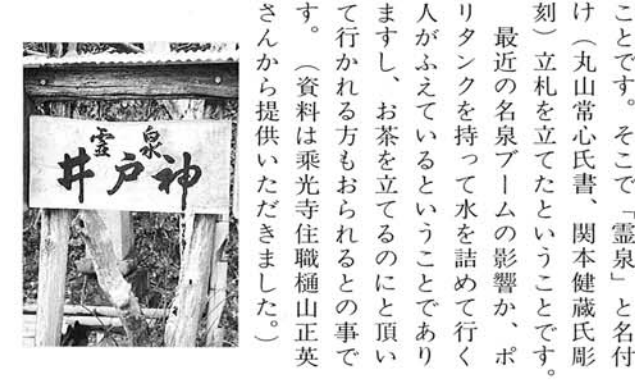 ことです。そこで「霊泉」と名付
け（丸山常心氏書、関本健蔵氏彫
刻）立札を立てたということです。
最近の名泉ブームの影響か、ポ
リタンクを持って水を詰めて行く
人がふえているということであり
ますし、お茶を立てるのにと頂い
て行かれる方もおられるとの事で
す。（資料は乗光寺住職樋山正英
さんから提供いただきました。）
霊泉
井戸神